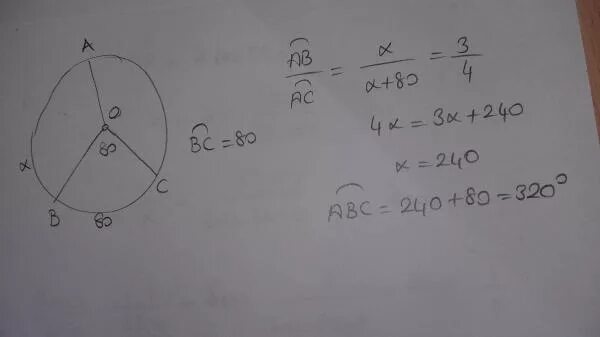 A
O
80
α
B
80
C
B͡C = 80
A͡B / A͡C = α / α+80 = 3 / 4
4α = 3α + 240
α = 240
A͡BC = 240 + 80 = 320°